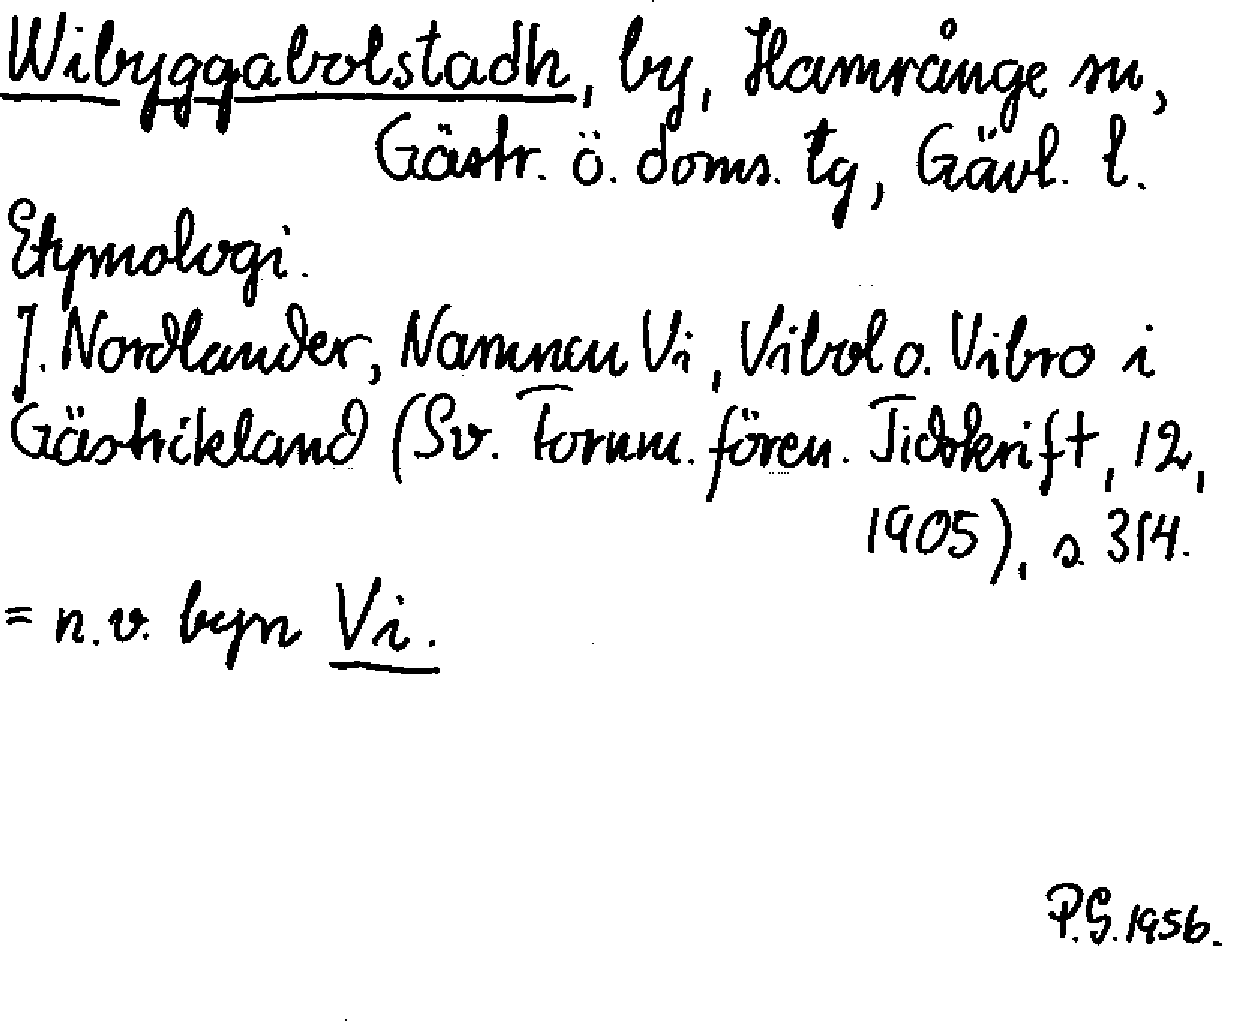 Wibyggabolstadh, by, Hamrånge sn,
Gästr. ö. doms. tg, Gävl. l.
Etymologi.
J. Nordlander, Namnen Vi, Vibol o. Vibro i
Gästrikland (Sv. Fornm. fören. Tidskrift, 12,
1905), s 314.
= n.v. byn Vi.
P.G. 1956.